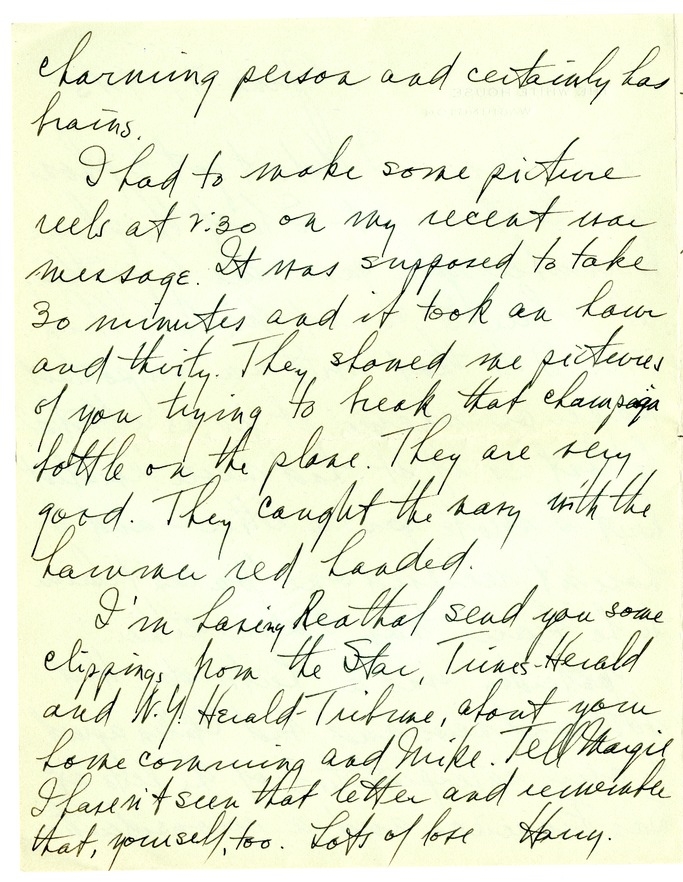 charming person and certainly has
brains.
I had to make some picture
reels at 2:30 on my recent war
message. It was supposed to take
30 minutes and it took an hour
and thirty. They showed me pictures
of you trying to break that champaign
bottle on the plane. They are very
good. They caught the navy with the
hammer red handed.
I'm having Reathal send you some
clippings from the Star, Times-Herald
and N.Y. Herald-Tribune, about your
home comming and Mike. Tell Margie
I haven't seen that letter and remember
that, yourself, too. Lots of love Harry.